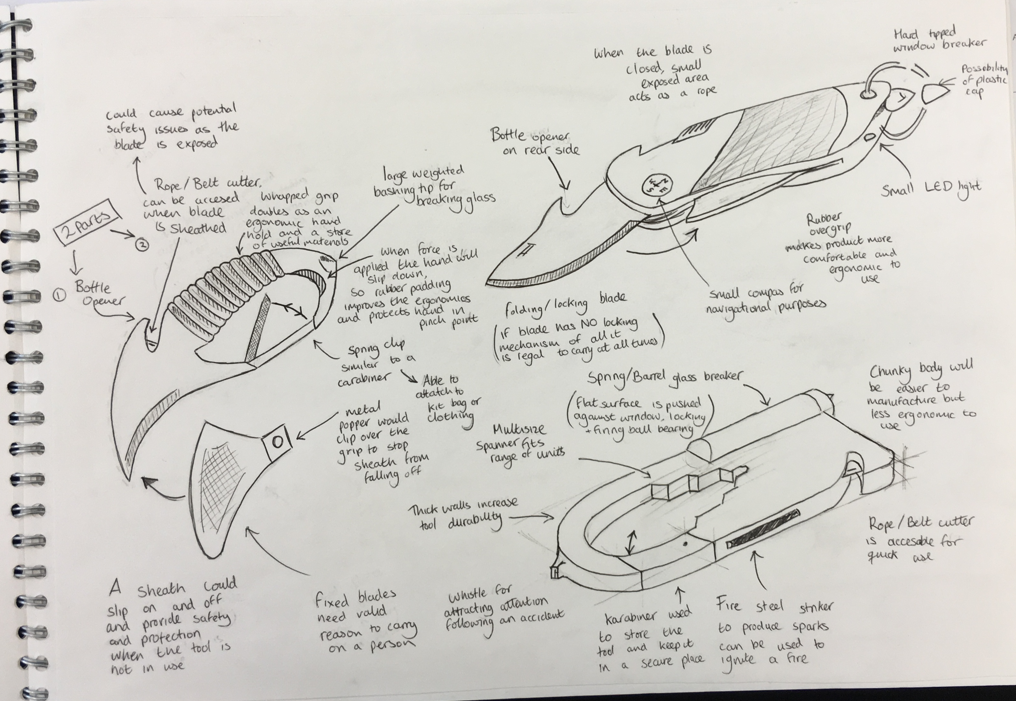 Could cause potential
safety issues as the
blade is exposed
Rope/Belt cutter.
can be accesed
when blade
is sheathed
2 parts
②
① Bottle
Opener
Wrapped grip
doubles as an
ergonomic hand
hold and a store
of useful materials
large weighted
bashing tip for
breaking glass
when force is
applied the hand will
slip down,
so rubber padding
improves the ergonomics
and protects hand in
pinch point
Spring clip
similar to a
carabiner
Able to
attatch to
kit bag or
clothing
metal
popper would
clip over the
grip to stop
sheath from
falling off
A sheath could
slip on and off
and provide safety
and protection
when the tool is
not in use
fixed blades
need valid
reason to carry
on a person
when the blade is
closed, small
exposed area
acts as a rope
Bottle opener
on rear side
Hard tipped
window breaker
Possibility
of plastic
cap
Small LED light
Rubber
overgrip
makes product more
comfortable and
ergonomic to
use
small compass for
navigational purposes
Folding/locking blade
(If blade has NO locking
mechanism of all it
is legal to carry at all times)
Spring/Barrel glass breaker
(flat surface is pushed
against window, locking
+ firing ball bearing)
Multisize
Spanner fits
range of units
Chunky body will
be easier to
manufacture but
less ergonomic to
use
Thick walls increase
tool durability
Rope/Belt cutter
is accesable for
quick use
Whistle for
attracting attention
following an accident
karabiner used
to store the
tool and keep it
in a secure place
Fire steel striker
to produce sparks
can be used to
ignite a fire